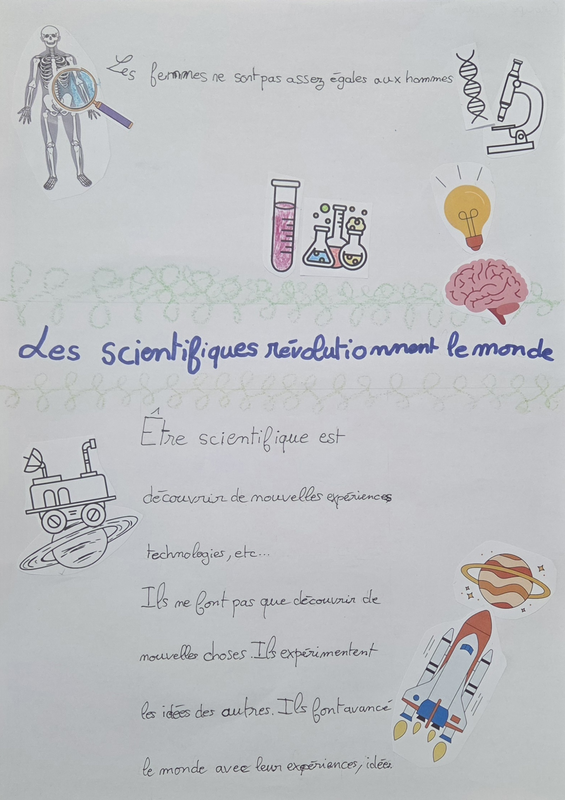 Les femmes ne sont pas assez égales aux hommes
Les scientifiques révolutionnent le monde
Être scientifique est
découvrir de nouvelles expériences
technologies, etc...
Ils ne font pas que découvrir de
nouvelles choses. Ils expérimentent
les idées des autres. Ils font avancé
le monde avec leur expériences, idées